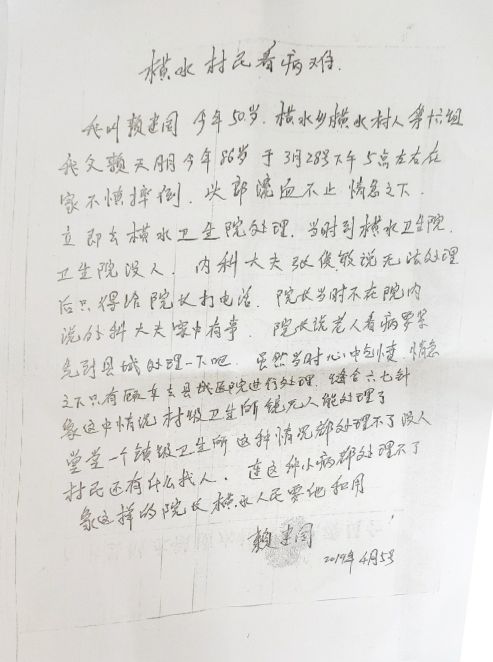 横水村民看病难.
我叫赖建国 今年50岁. 横水乡横水村人 第十六组
我父赖天朋今年86岁 于3月28号下午5点左右在
家不慎摔倒. 头部流血不止 情急之下.
立即去横水卫生院处理. 当时到横水卫生院.
卫生院没人. 内科大夫张俊敏说无法处理
后只得给院长打电话. 院长当时不在院内
说外科大夫家中有事. 院长说老人看病要紧
先到县城处理一下吧 虽然当时心中气愤. 情急
之下只有顾车去县城医院进行处理. 缝合六七针
象这中情况 村级卫生所 都无人能处理了
堂堂一个镇级卫生所 这种情况都处理不了 没人
村民还有什么找人. 连这种小病都处理不了
象这样的院长 横水人民要他和用
赖建国
2019年4月5号